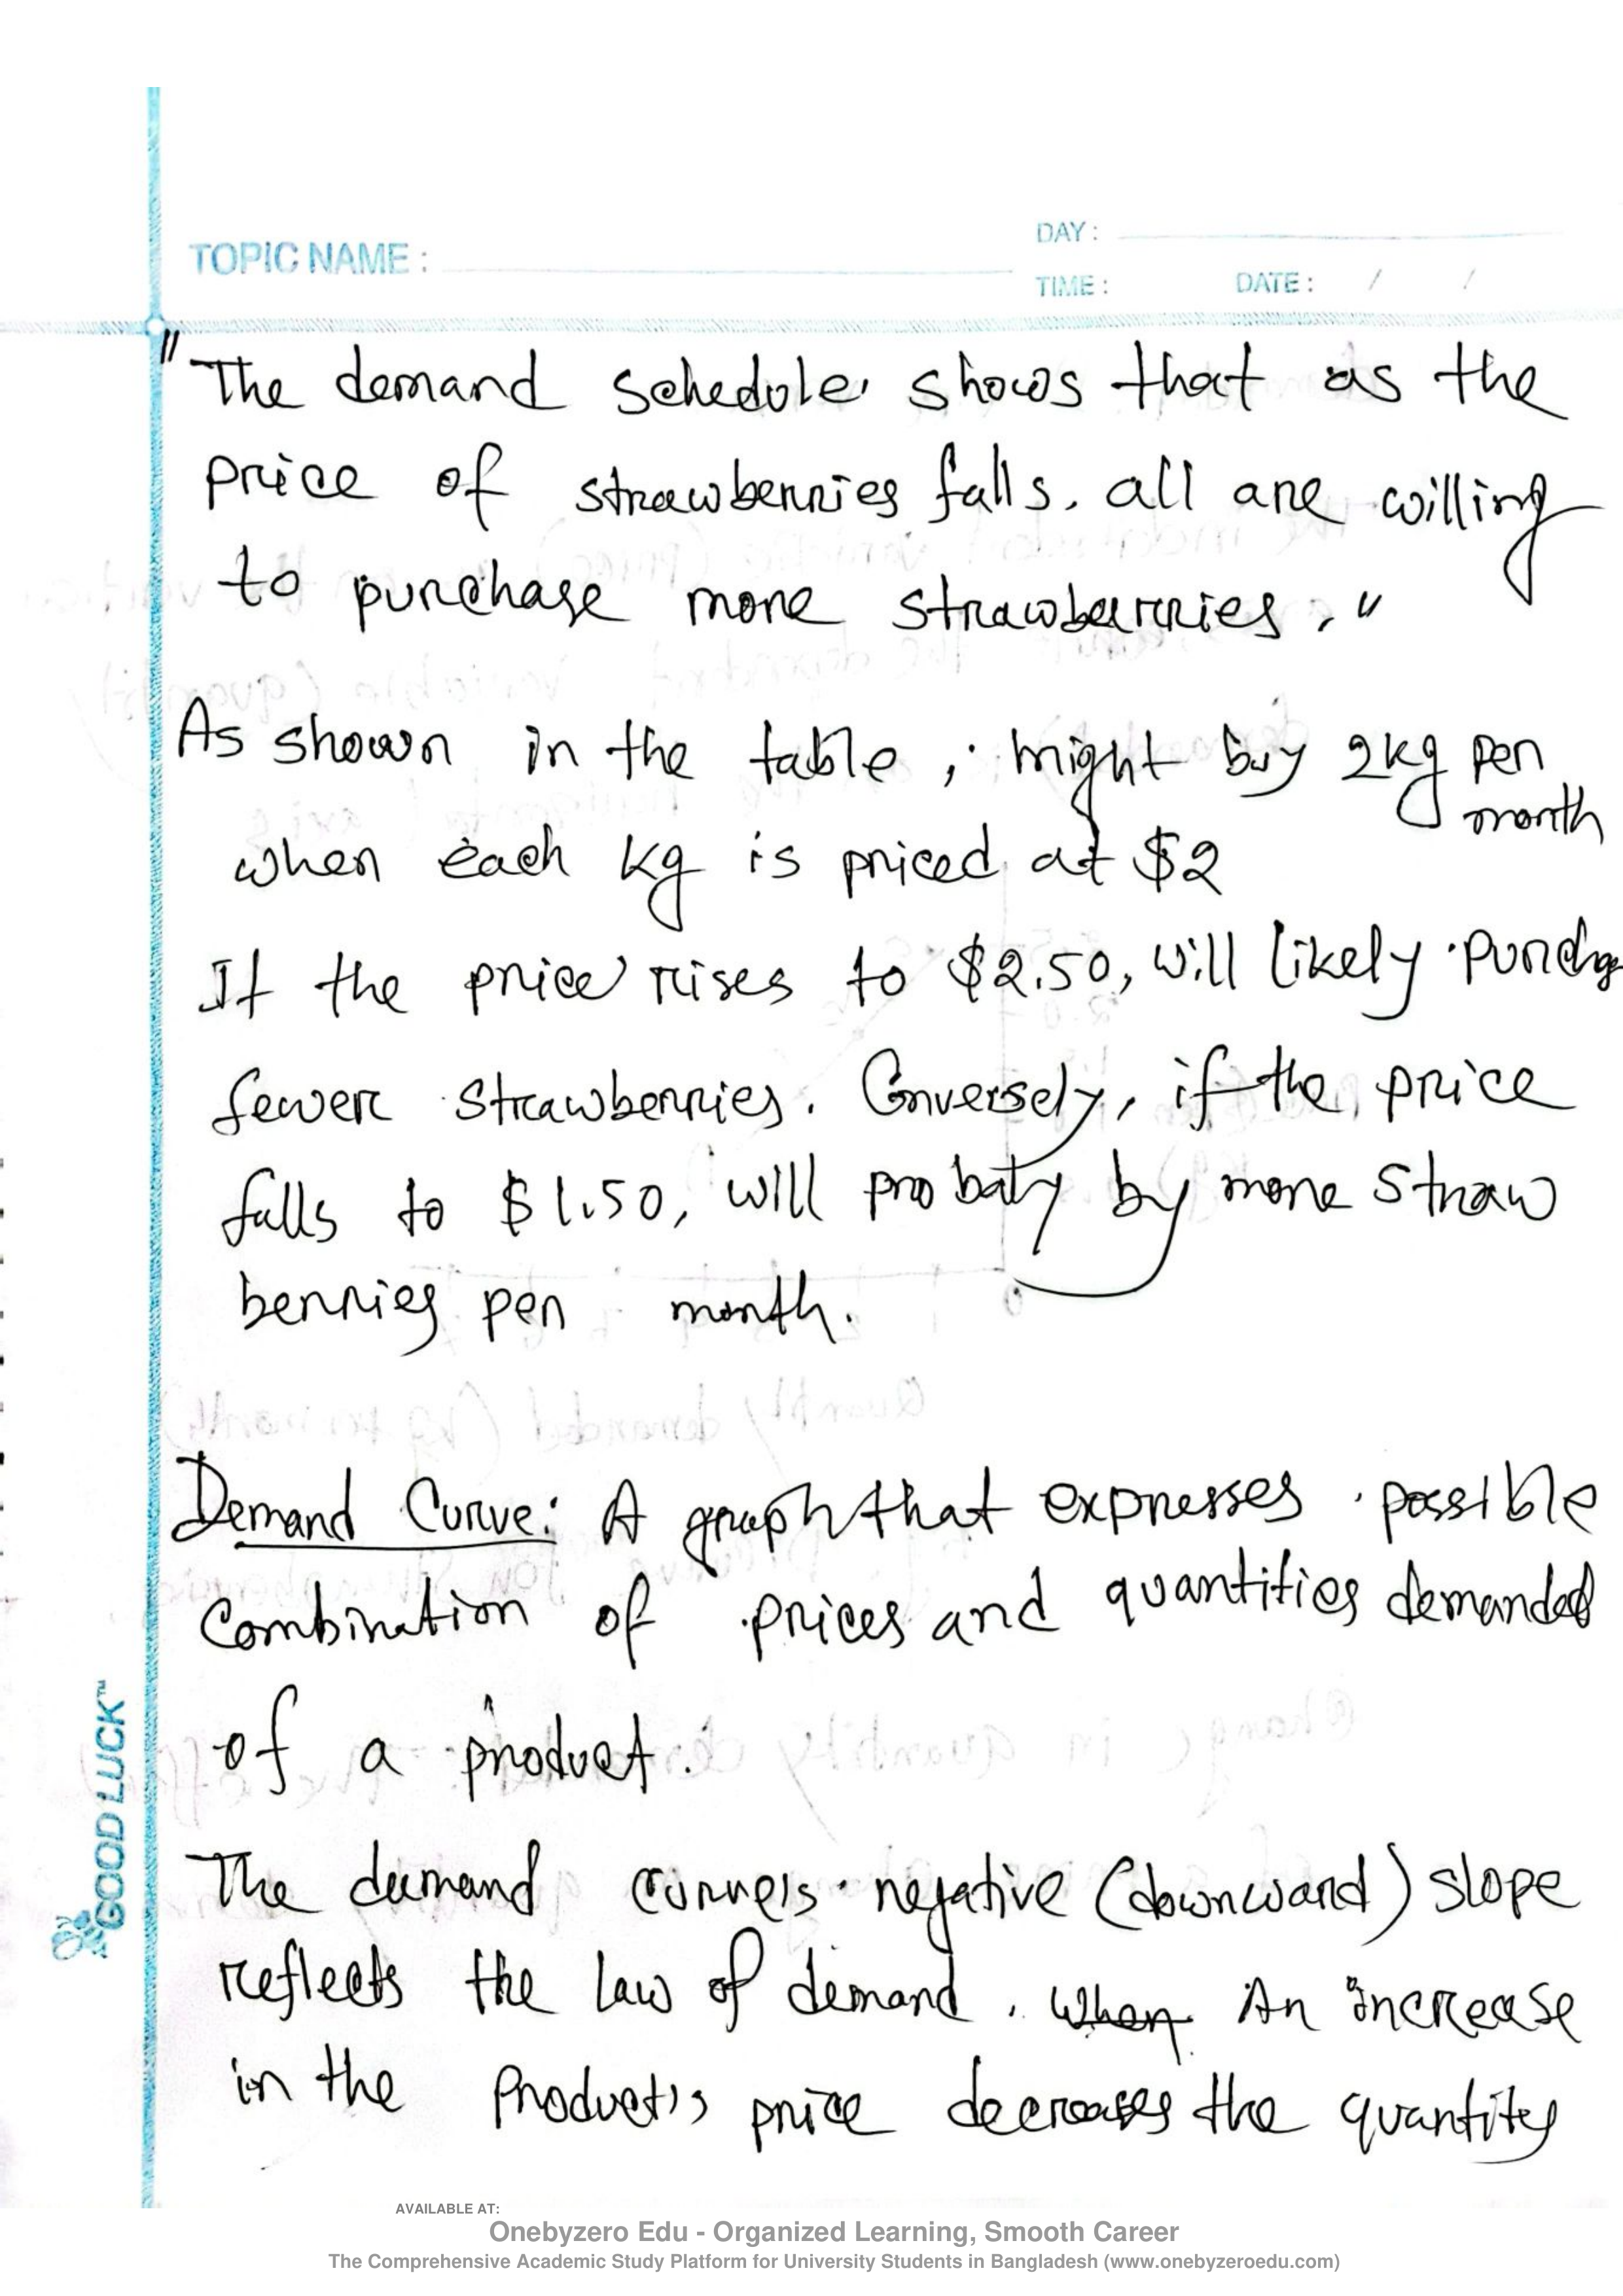 TOPIC NAME :
DAY :
TIME : DATE : / /
"The demand schedule shows that as the
price of strawberries falls. all are willing
to purchase more strawberries."
As shown in the table, might buy 2kg per
month
when each kg is priced at $2
If the price rises to $2.50, will likely
fewer strawberries. Conversely, if the price
falls to $1.50, will probaly by more straw
berries per month.
Demand Curve: A graph that expresses possible
Combination of prices and quantities demanded
of a product.
The demand curve's negative (downward) slope
reflects the law of demand. when An increase
in the Product's price decreases the quantity
GOOD LUCK™
AVAILABLE AT:
Onebyzero Edu - Organized Learning, Smooth Career
The Comprehensive Academic Study Platform for University Students in Bangladesh (www.onebyzeroedu.com)